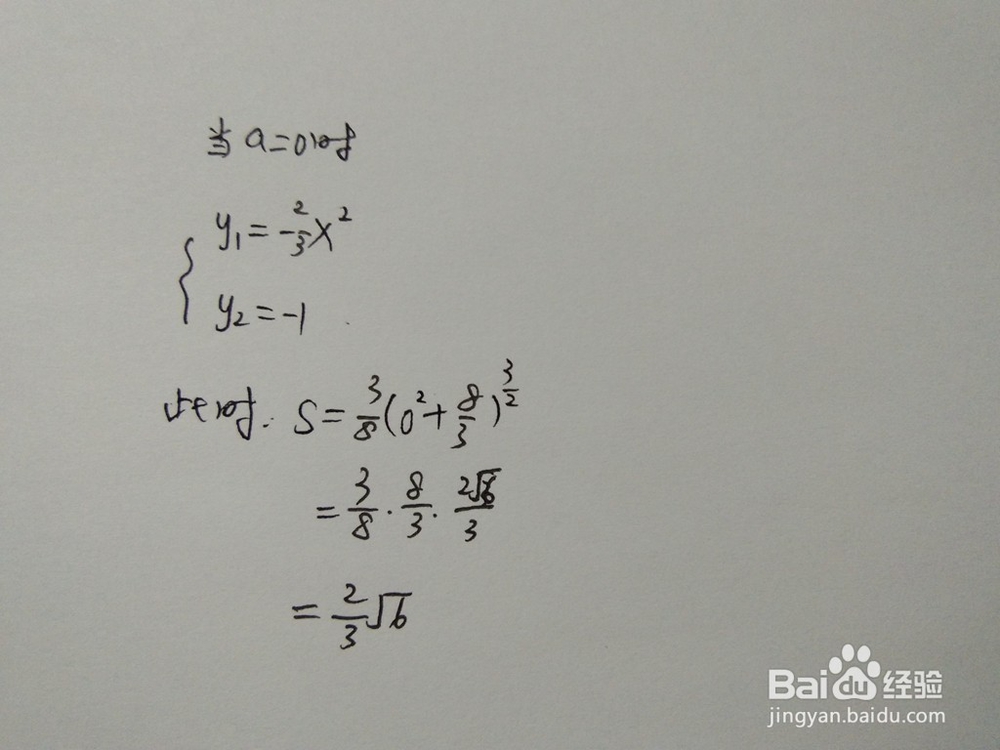 当 a=0时
y₁=-2/3x²
y₂=-1
此时. S=3/8(0²+8/3)^(3/2)
=3/8·8/3·2√6/3
=2/3√6
Baidu经验
jingyan.baidu.com